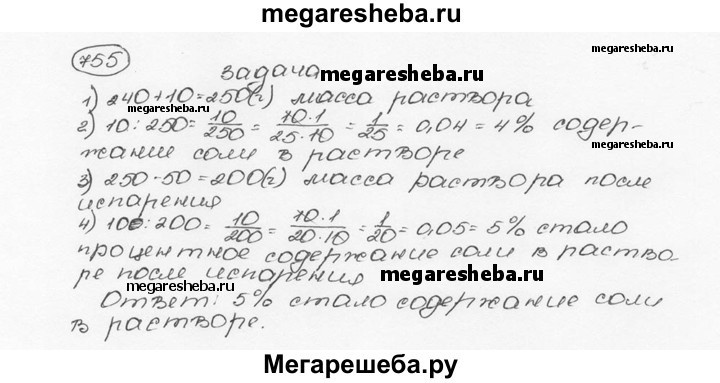 megaresheba.ru
755
megaresheba.ru
задача megaresheba.ru
1) 240+10=250(г) масса раствора
2) 10:250= 10/250 = 10·1/25·10 = 1/25 = 0,04 = 4% содер-
жание соли в растворе megaresheba.ru
3) 250-50=200(г) масса раствора после
испарения
4) 100:200= 10/200 = 10·1/20·10 = 1/20 = 0,05 = 5% стало
процентное содержание соли в раство
ре после испарения megaresheba.ru
Ответ: 5% стало содержание соли
в растворе.
megaresheba.ru
Мегарешеба.ру